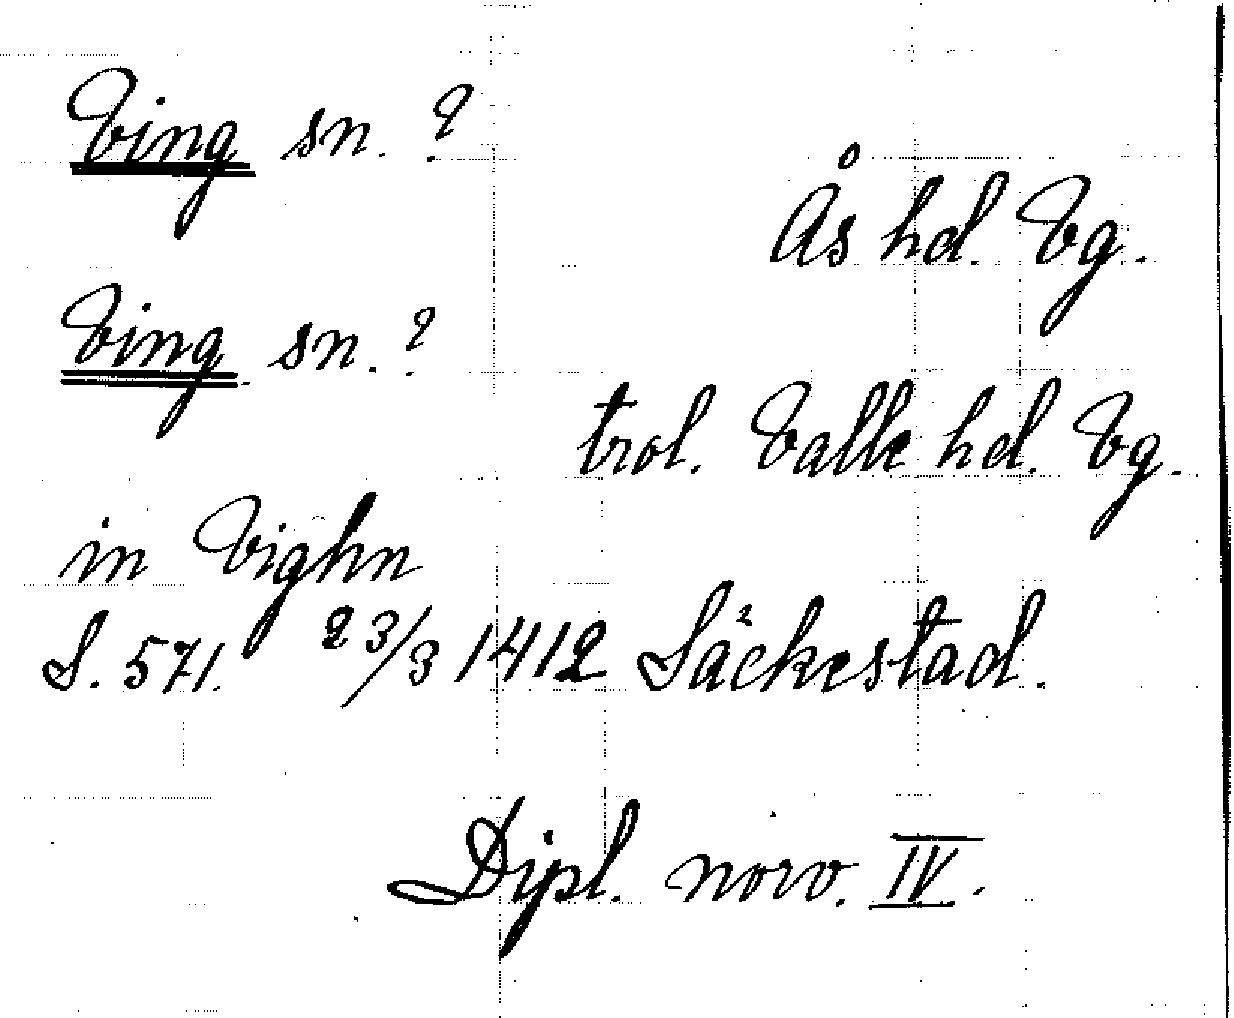 Ving sn. ?
Ås hd. Vg.
Ving sn. ?
trol. Valle hd. Vg.
in Vighn
S. 571. 23/3 1412 Säckestad.
Dipl. norv. IV.